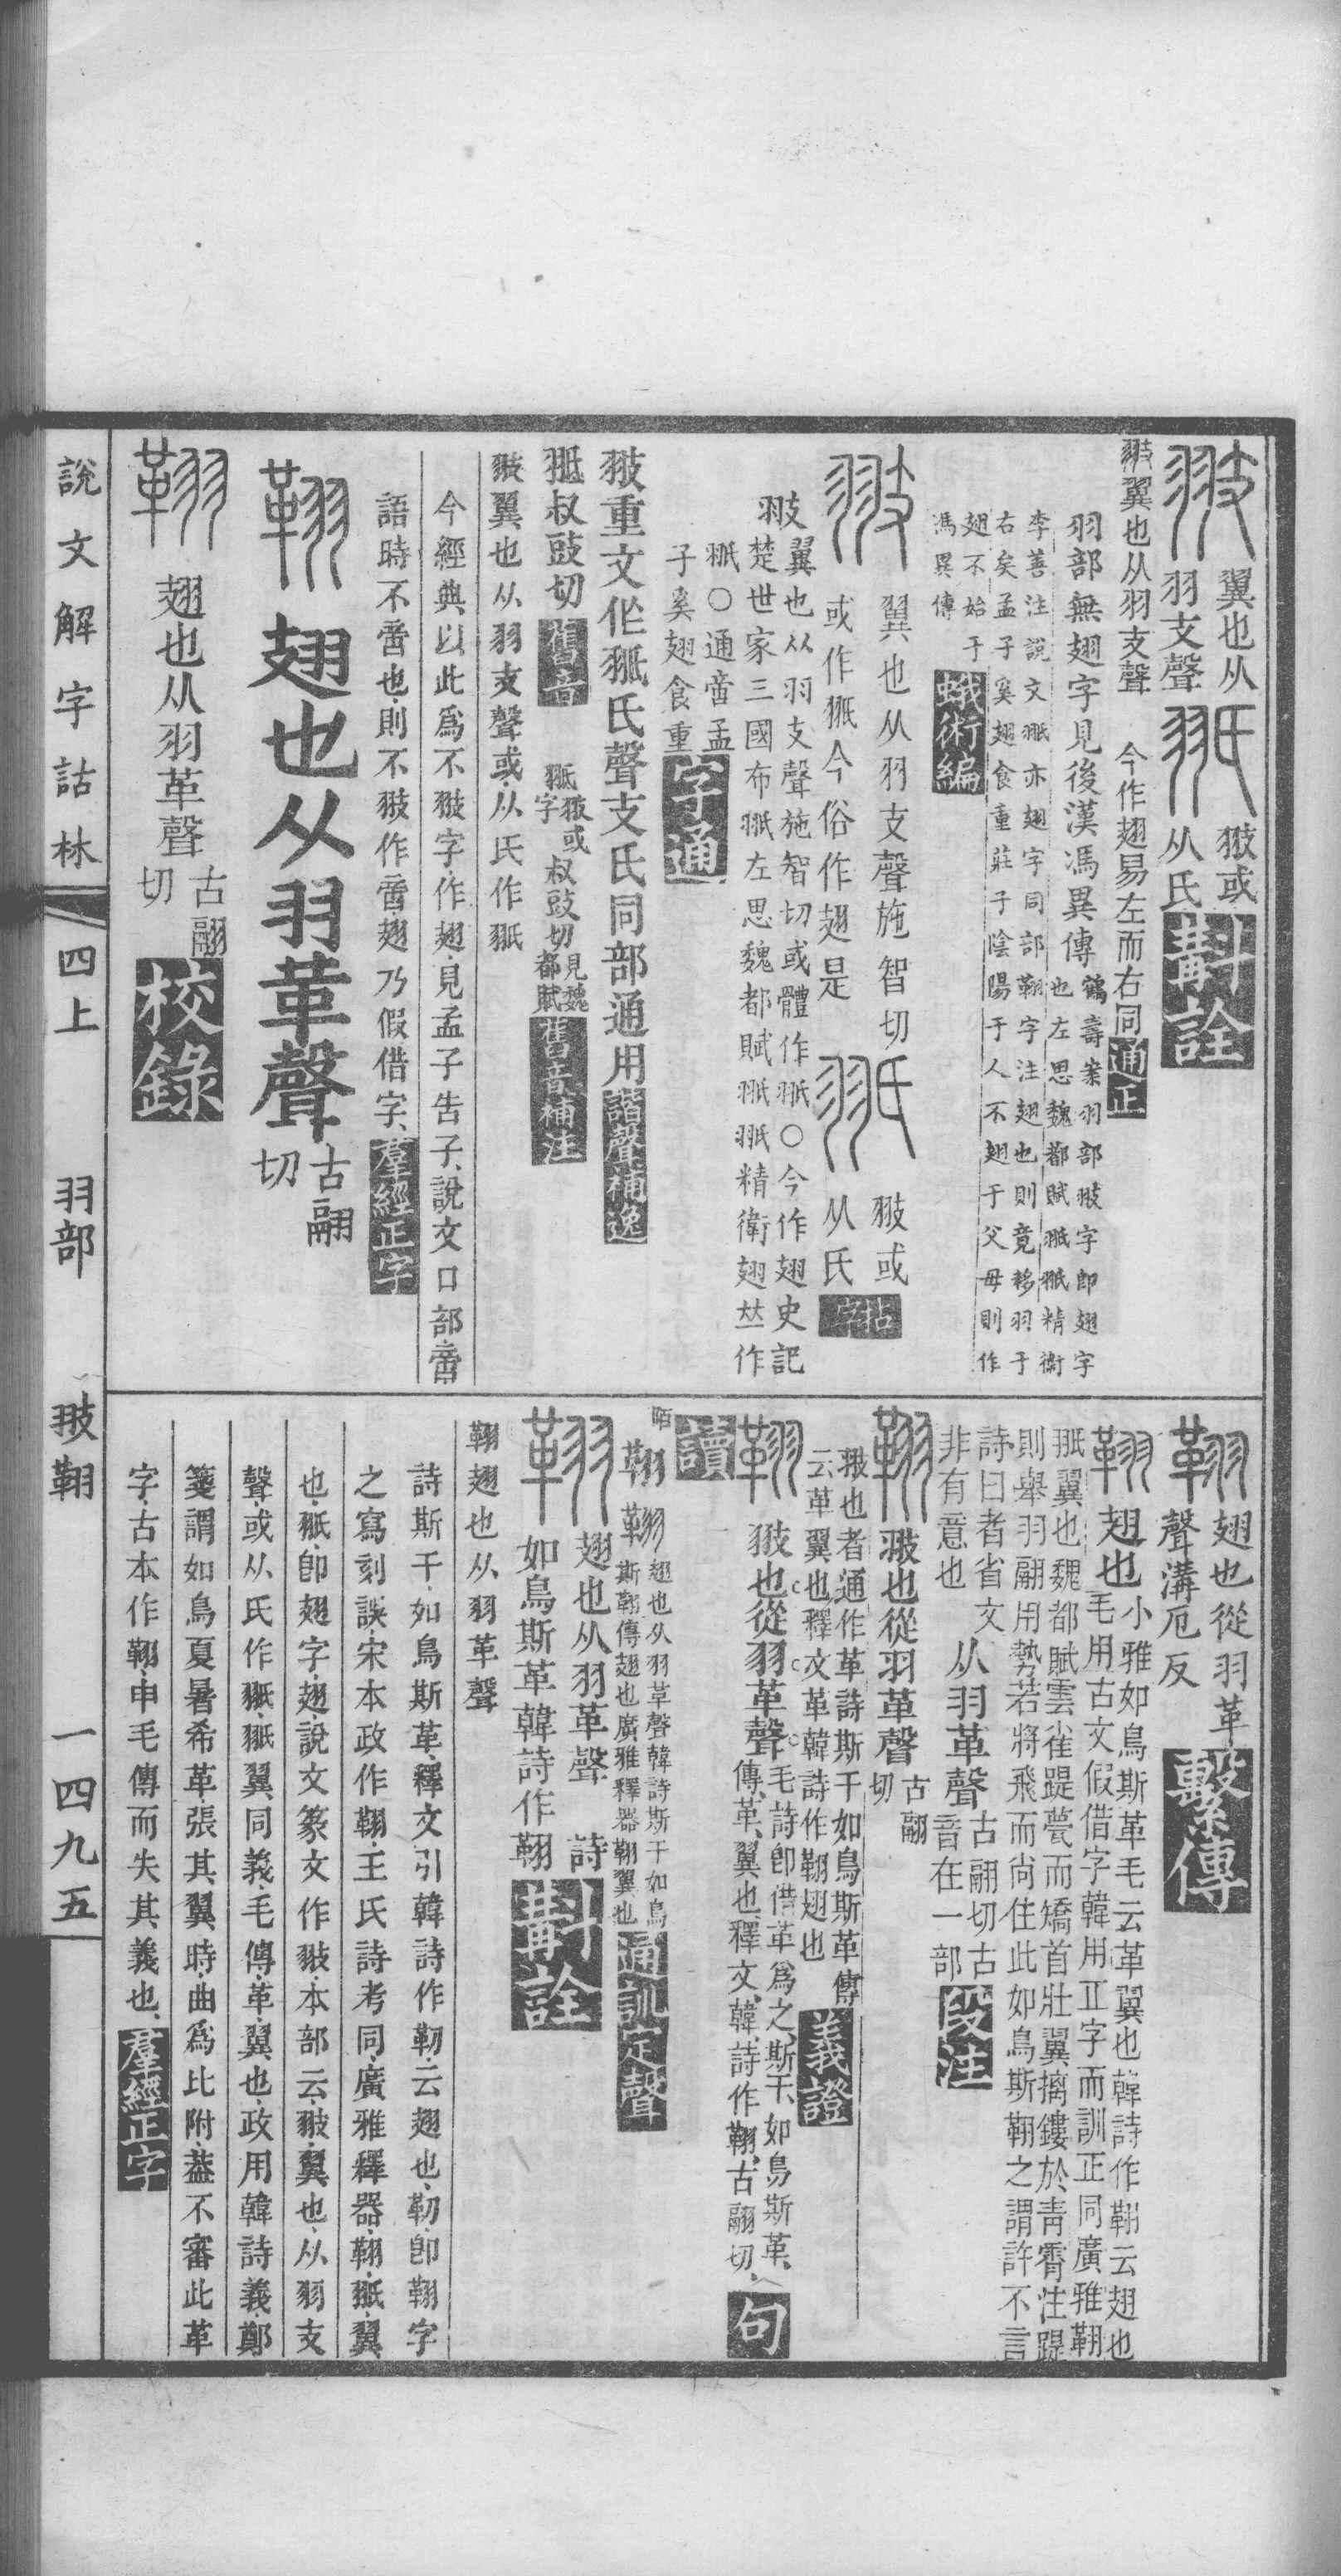 翼也从
羽支聲
翄或
从氏
斠詮
翄翼也从羽支聲
今作翅易左而右同
通正
羽部無翅字見後漢馮異傳
鶴壽案羽部翄字卽翅字
也左思魏都賦𦐊𦐊精衞
李善注說文𦐊亦翅字同部䎗字注翅也則竟移羽于
右矣孟子奚翅食重莊子陰陽于人不翅于父母則作
翅不始于
馮異傳
蛾術編
翼也从羽支聲施智切
或作𦐊今俗作翅是
翄或
从氏
拈字
翄翼也从羽支聲施智切或體作𦐊○今作翅史記
楚世家三國布𦐊左思魏都賦𦐊𦐊精衛翅𠀤作
𦐊○通啻孟
子奚翅食重
字通
翄重文作𦐊氏聲支氏同部通用
諧聲補逸
𦐊叔豉切
舊音
𦐊翄或
字
叔豉切
見魏
都賦
舊音補注
翄翼也从羽支聲或从氏作𦐊
今經典以此爲不翄字作翅見孟子告子說文口部啻
語時不啻也則不翄作啻翅乃假借字
羣經正字
䎗
翅也从羽革聲
古翮
切
翅也从羽革聲
古翮
切
校錄
說文解字詁林
四上
羽部
翄䎗
一四九五
翅也從羽革
聲溝厄反
繫傳
翅也
小雅如鳥斯革毛云革翼也韓詩作䎗云翅也
毛用古文假借字韓用正字而訓正同廣雅䎗
𦐊翼也魏都賦雲雀踶甍而矯首壯翼摛鏤於靑霄注踶
則舉羽翮用勢若將飛而尚住此如鳥斯䎗之謂許不言
詩曰者省文
非有意也
从羽革聲
古翮切古
音在一部
段注
翄也從羽革聲
古翮
切
翄也者通作革詩斯干如鳥斯革傳
云革翼也釋文革韓詩作䎗翅也
義證
翄也從羽革聲
毛詩卽借革爲之斯干如鳥斯革
傳革翼也釋文韓詩作䎗古翮切
句
讀
䎗
翅也从羽革聲韓詩斯干如鳥
斯䎗傳翅也廣雅釋器䎗翼也
通訓定聲
翅也从羽革聲 詩
如鳥斯革韓詩作䎗
斠詮
䎗翅也从羽革聲
詩斯干如鳥斯革釋文引韓詩作勒云翅也勒卽䎗字
之寫刻誤宋本政作䎗王氏詩考同廣雅釋器䎗𦐊翼
也𦐊卽翅字翅說文篆文作翄本部云翄翼也从羽支
聲或从氏作𦐊𦐊翼同義毛傳革翼也政用韓詩義鄭
箋謂如鳥夏暑希革張其翼時曲爲比附葢不審此革
字古本作䎗申毛傳而失其義也
羣經正字